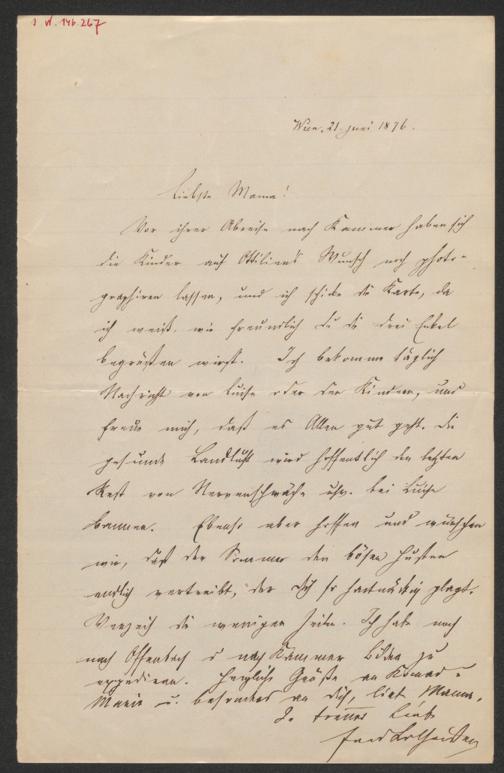 J. N. 146.267
Wien, 21. Juni 1876.
Liebste Mama!
Vor ihrer Abreise nach Kammer haben sich
die Kinder auf Ottiliens Wunsch noch photo-
graphiren lassen, und ich schicke die Karte, da
ich weiß, wie freundlich Du die drei Enkel
begrüßen wirst. Ich bekomme täglich
Nachricht von Luise oder den Kindern, und
freue mich, daß es Allen gut geht. Die
gesunde Landluft wird hoffentlich den letzten
Rest von Nervenschwäche usw. bei Luise
bannen. Ebenso aber hoffen und wünschen
wir, daß der Sommer den bösen Husten
endlich vertreibt, der Dich so hartnäckig plagt.
Verzeih die wenigen Zeilen. Ich habe noch
nach Offenbach u nach Kammer Bilder zu
expediren. Herzliche Grüße an Konrad u
Marie u. besonders an Dich, liebe Mama.
In treuer Liebe
Ferd Lotheissen